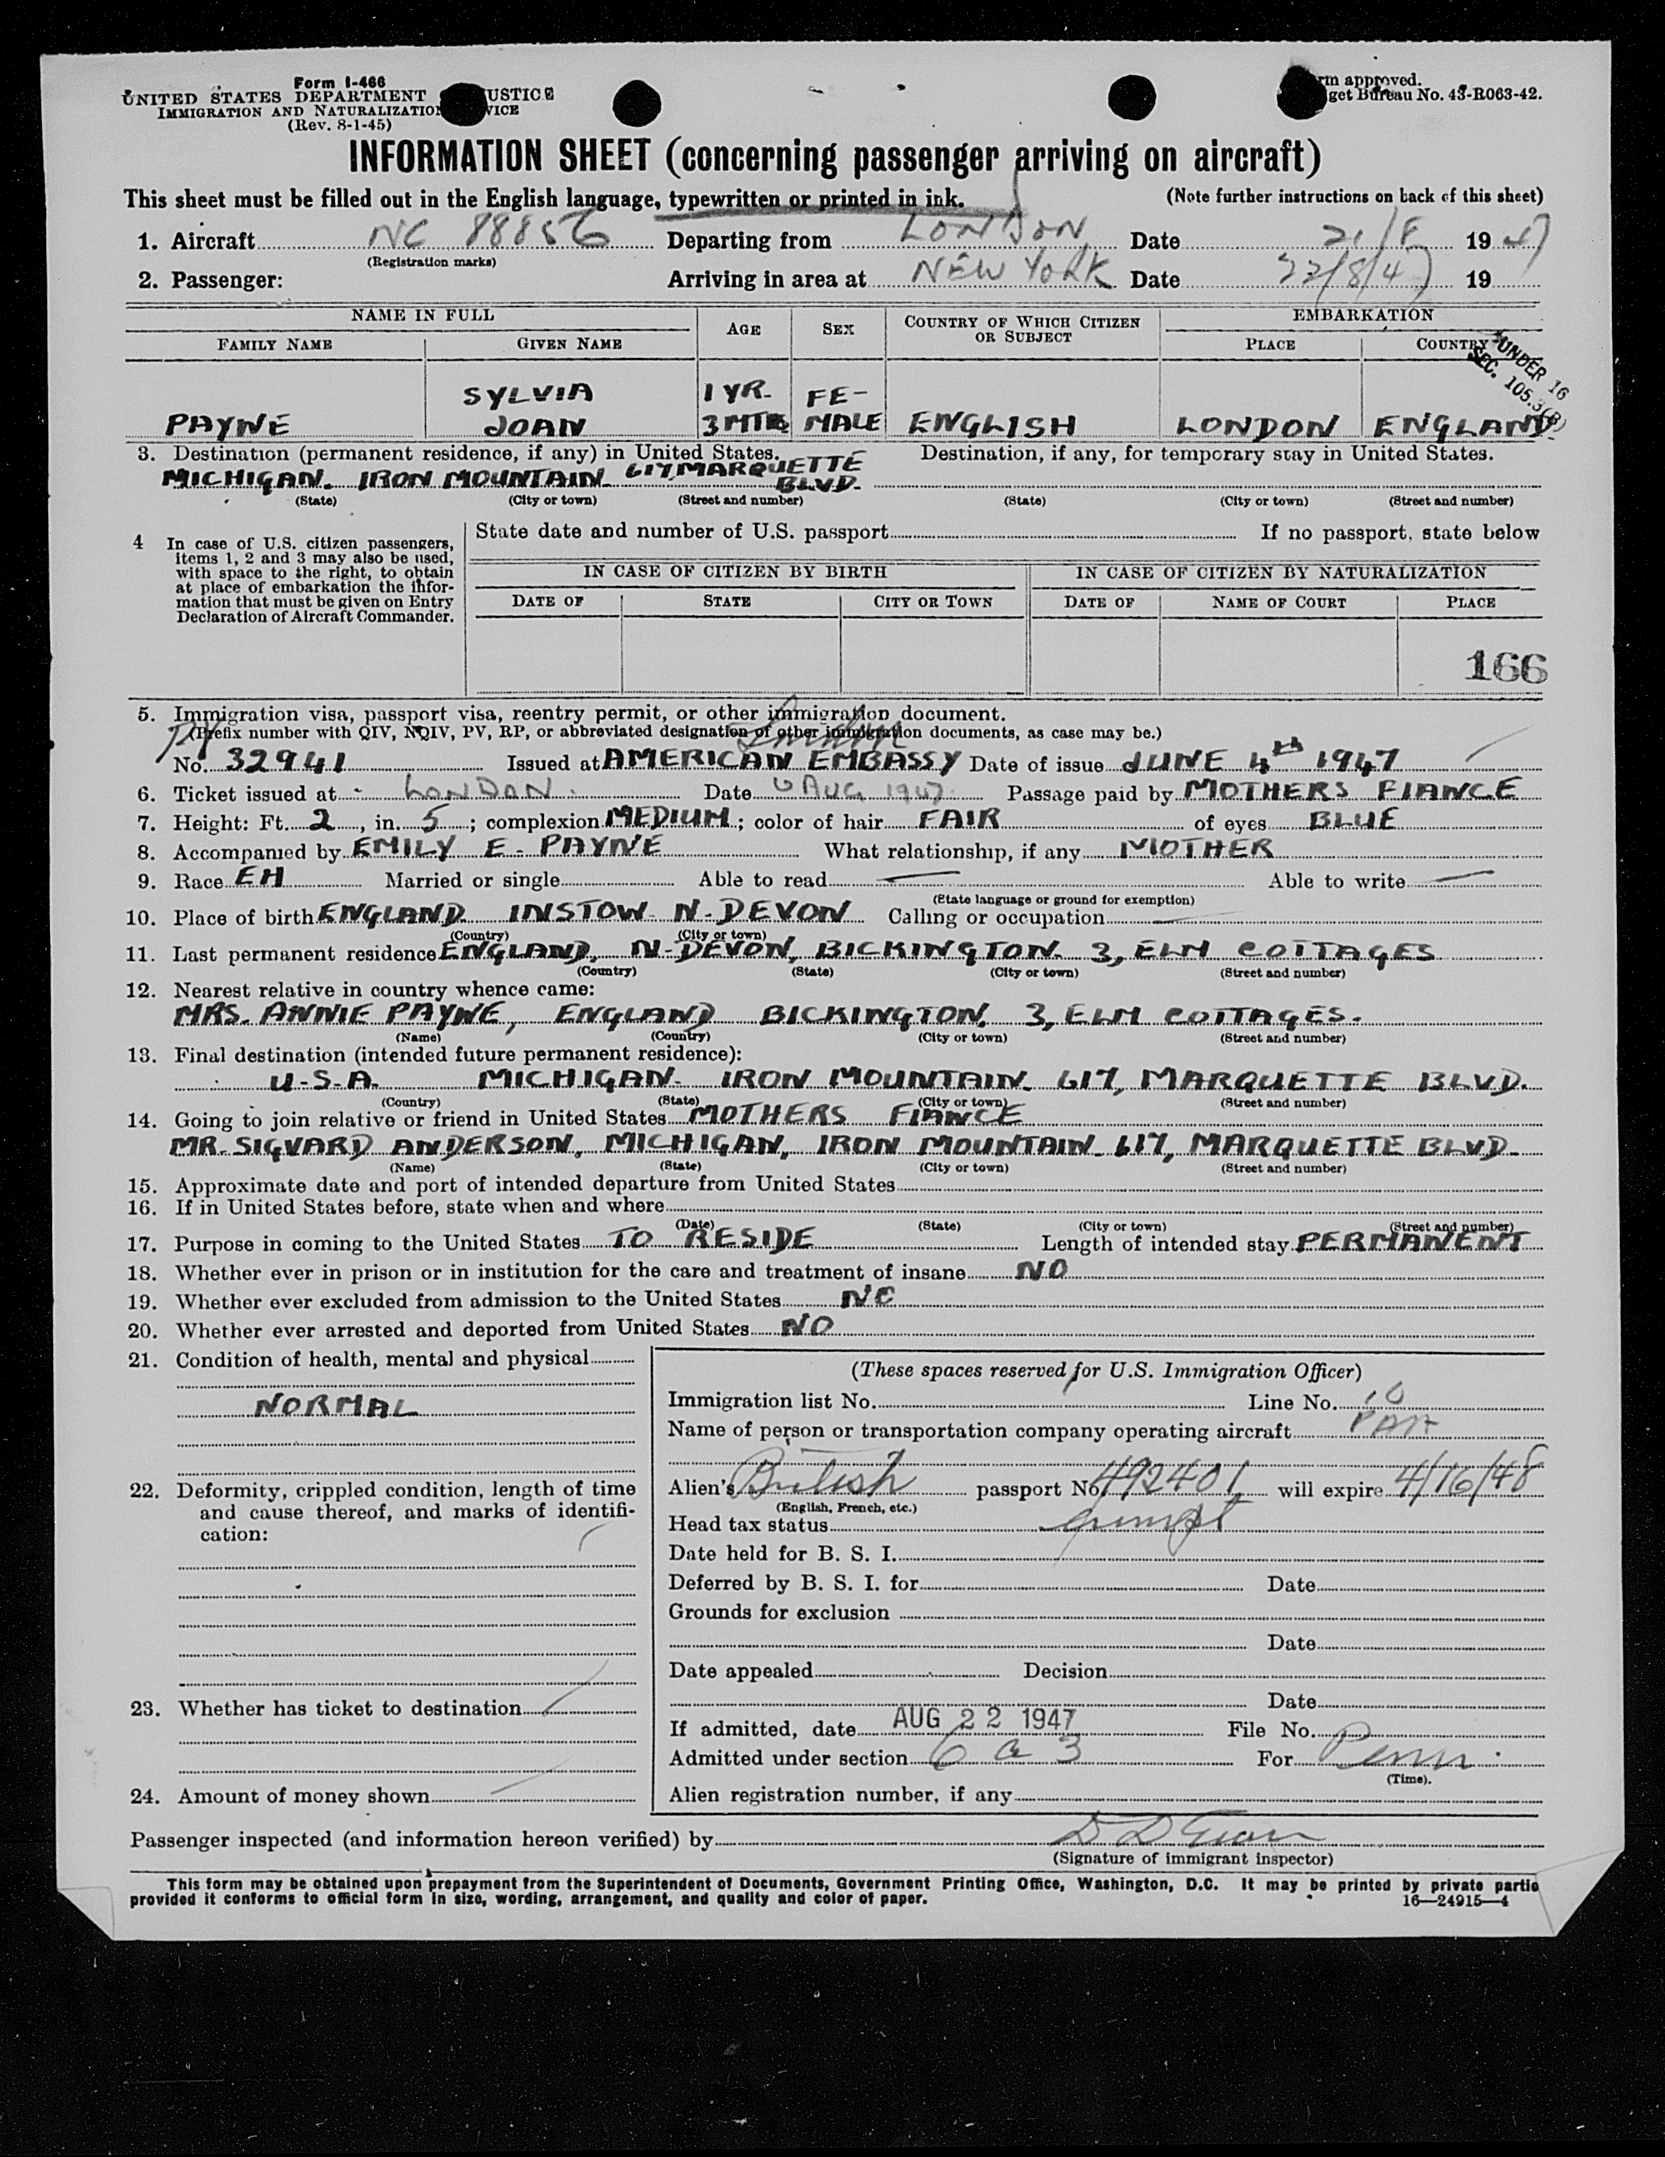 Form I-466
UNITED STATES DEPARTMENT USTICE
IMMIGRATION AND NATURALIZATION VICE
(Rev. 8-1-45)
rm approved.
get Bureau No. 43-R063-42.
INFORMATION SHEET (concerning passenger arriving on aircraft)
This sheet must be filled out in the English language, typewritten or printed in ink. (Note further instructions on back of this sheet)
1. Aircraft NC 88856 Departing from LONDON Date 21/8 1947
(Registration marks)
2. Passenger: Arriving in area at NEW YORK Date 22/8/47 19
NAME IN FULL AGE SEX COUNTRY OF WHICH CITIZEN OR SUBJECT EMBARKATION
FAMILY NAME GIVEN NAME PLACE COUNTRY
UNDER 16
SEC. 105.3(B)
SYLVIA 1 YR. FE-
PAYNE JOAN 3 MTHS MALE ENGLISH LONDON ENGLAND
3. Destination (permanent residence, if any) in United States. Destination, if any, for temporary stay in United States.
MICHIGAN. IRON MOUNTAIN 617, MARQUETTE BLVD.
(State) (City or town) (Street and number) (State) (City or town) (Street and number)
4 In case of U.S. citizen passengers, items 1, 2 and 3 may also be used, with space to the right, to obtain at place of embarkation the information that must be given on Entry Declaration of Aircraft Commander.
State date and number of U.S. passport If no passport, state below
IN CASE OF CITIZEN BY BIRTH IN CASE OF CITIZEN BY NATURALIZATION
DATE OF STATE CITY OR TOWN DATE OF NAME OF COURT PLACE
166
5. Immigration visa, passport visa, reentry permit, or other immigration document.
(Prefix number with QIV, NQIV, PV, RP, or abbreviated designation of other immigration documents, as case may be.)
PV London
No. 32941 Issued at AMERICAN EMBASSY Date of issue JUNE 4th 1947
6. Ticket issued at LONDON. Date AUG 1947 Passage paid by MOTHERS FIANCE
7. Height: Ft. 2, in. 5; complexion MEDIUM; color of hair FAIR of eyes BLUE
8. Accompanied by EMILY E. PAYNE What relationship, if any MOTHER
9. Race EH Married or single Able to read Able to write
(State language or ground for exemption)
10. Place of birth ENGLAND INSTOW N. DEVON Calling or occupation
(Country) (City or town)
11. Last permanent residence ENGLAND, N-DEVON, BICKINGTON. 3, ELM COTTAGES
(Country) (State) (City or town) (Street and number)
12. Nearest relative in country whence came:
MRS. ANNIE PAYNE, ENGLAND BICKINGTON, 3, ELM COTTAGES.
(Name) (Country) (City or town) (Street and number)
13. Final destination (intended future permanent residence):
U-S-A. MICHIGAN. IRON MOUNTAIN. 617, MARQUETTE BLVD.
(Country) (State) (City or town) (Street and number)
14. Going to join relative or friend in United States MOTHERS FIANCE
MR. SIGVARD ANDERSON, MICHIGAN, IRON MOUNTAIN. 617, MARQUETTE BLVD.
(Name) (State) (City or town) (Street and number)
15. Approximate date and port of intended departure from United States
16. If in United States before, state when and where
(Date) (State) (City or town) (Street and number)
17. Purpose in coming to the United States TO RESIDE Length of intended stay PERMANENT
18. Whether ever in prison or in institution for the care and treatment of insane NO
19. Whether ever excluded from admission to the United States NO
20. Whether ever arrested and deported from United States NO
21. Condition of health, mental and physical
NORMAL
22. Deformity, crippled condition, length of time
and cause thereof, and marks of identifi-
cation:
23. Whether has ticket to destination
24. Amount of money shown
(These spaces reserved for U.S. Immigration Officer)
Immigration list No. Line No. 10
Name of person or transportation company operating aircraft PAA
Alien's British passport No. 492401 will expire 4/16/48
(English, French, etc.)
Head tax status exempt
Date held for B. S. I.
Deferred by B. S. I. for Date
Grounds for exclusion
Date
Date appealed Decision
Date
If admitted, date AUG 22 1947 File No.
Admitted under section 6 a 3 For Perm.
(Time).
Alien registration number, if any
Passenger inspected (and information hereon verified) by
(Signature of immigrant inspector)
This form may be obtained upon prepayment from the Superintendent of Documents, Government Printing Office, Washington, D.C. It may be printed by private partie
provided it conforms to official form in size, wording, arrangement, and quality and color of paper. 16—24915—4